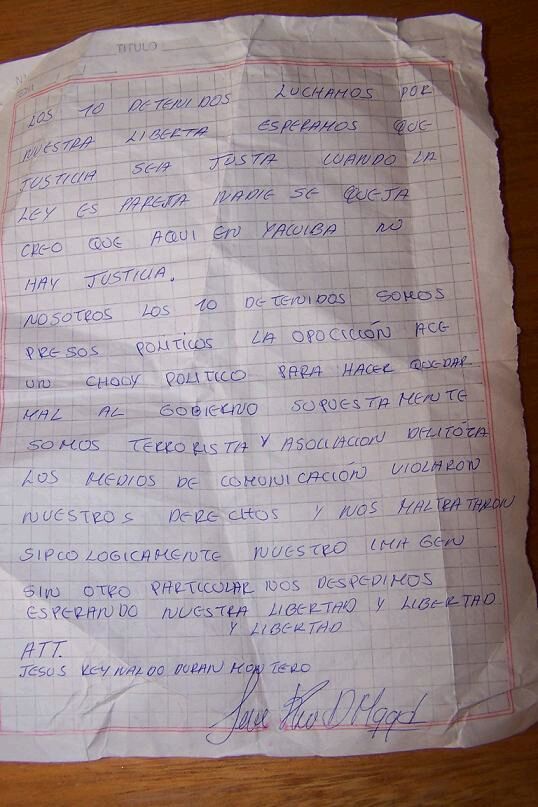 TITULO
LOS 10 DETENIDOS LUCHAMOS POR
NUESTRA LIBERTA ESPERAMOS QUE
JUSTICIA SEA JUSTA CUANDO LA
LEY ES PAREJA NADIE SE QUEJA
CREO QUE AQUI EN YACUIBA NO
HAY JUSTICIA.
NOSOTROS LOS 10 DETENIDOS SOMOS
PRESOS POLITICOS LA OPOCICIÓN ACE
UN CHOW POLITICO PARA HACER QUEDAR
MAL AL GOBIERNO SUPUESTAMENTE
SOMOS TERRORISTA Y ASOCIACION DELITÓZA
LOS MEDIOS DE COMUNICACIÓN VIOLARON
NUESTROS DERECHOS Y NOS MALTRATARON
SIPCOLOGICAMENTE NUESTRO IMAGEN
SIN OTRO PARTICULAR NOS DESPEDIMOS
ESPERANDO NUESTRA LIBERTAD Y LIBERTAD
Y LIBERTAD
ATT.
JESUS REYNALDO DURAN MONTERO